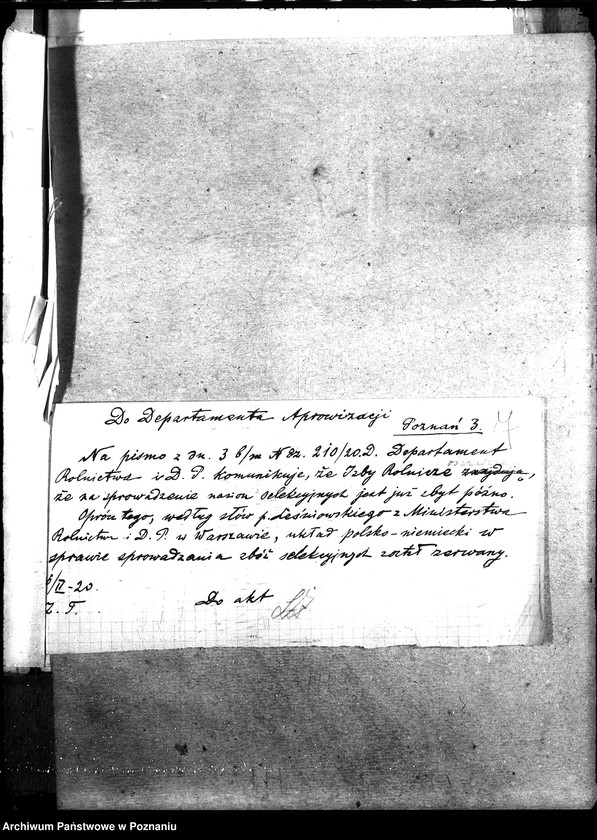 Do Departamenta Aprowizacji
Poznań 3.
Na pismo z dn. 3 b/m N dz. 210/20.D. Departament
Rolnictwa i D. P. komunikuje, że Izby Rolnicze znajdują,
że na sprowadzenie nasion selekcyjnych jest już zbyt późno.
Oprócz tego, według słów p. Leśniowskiego z Ministerstwa
Rolnictwa i D. P. w Warszawie, układ polsko-niemiecki w
sprawie sprowadzania zbóż selekcyjnych został zerwany.
/II-20.
Do akt
Archiwum Państwowe w Poznaniu